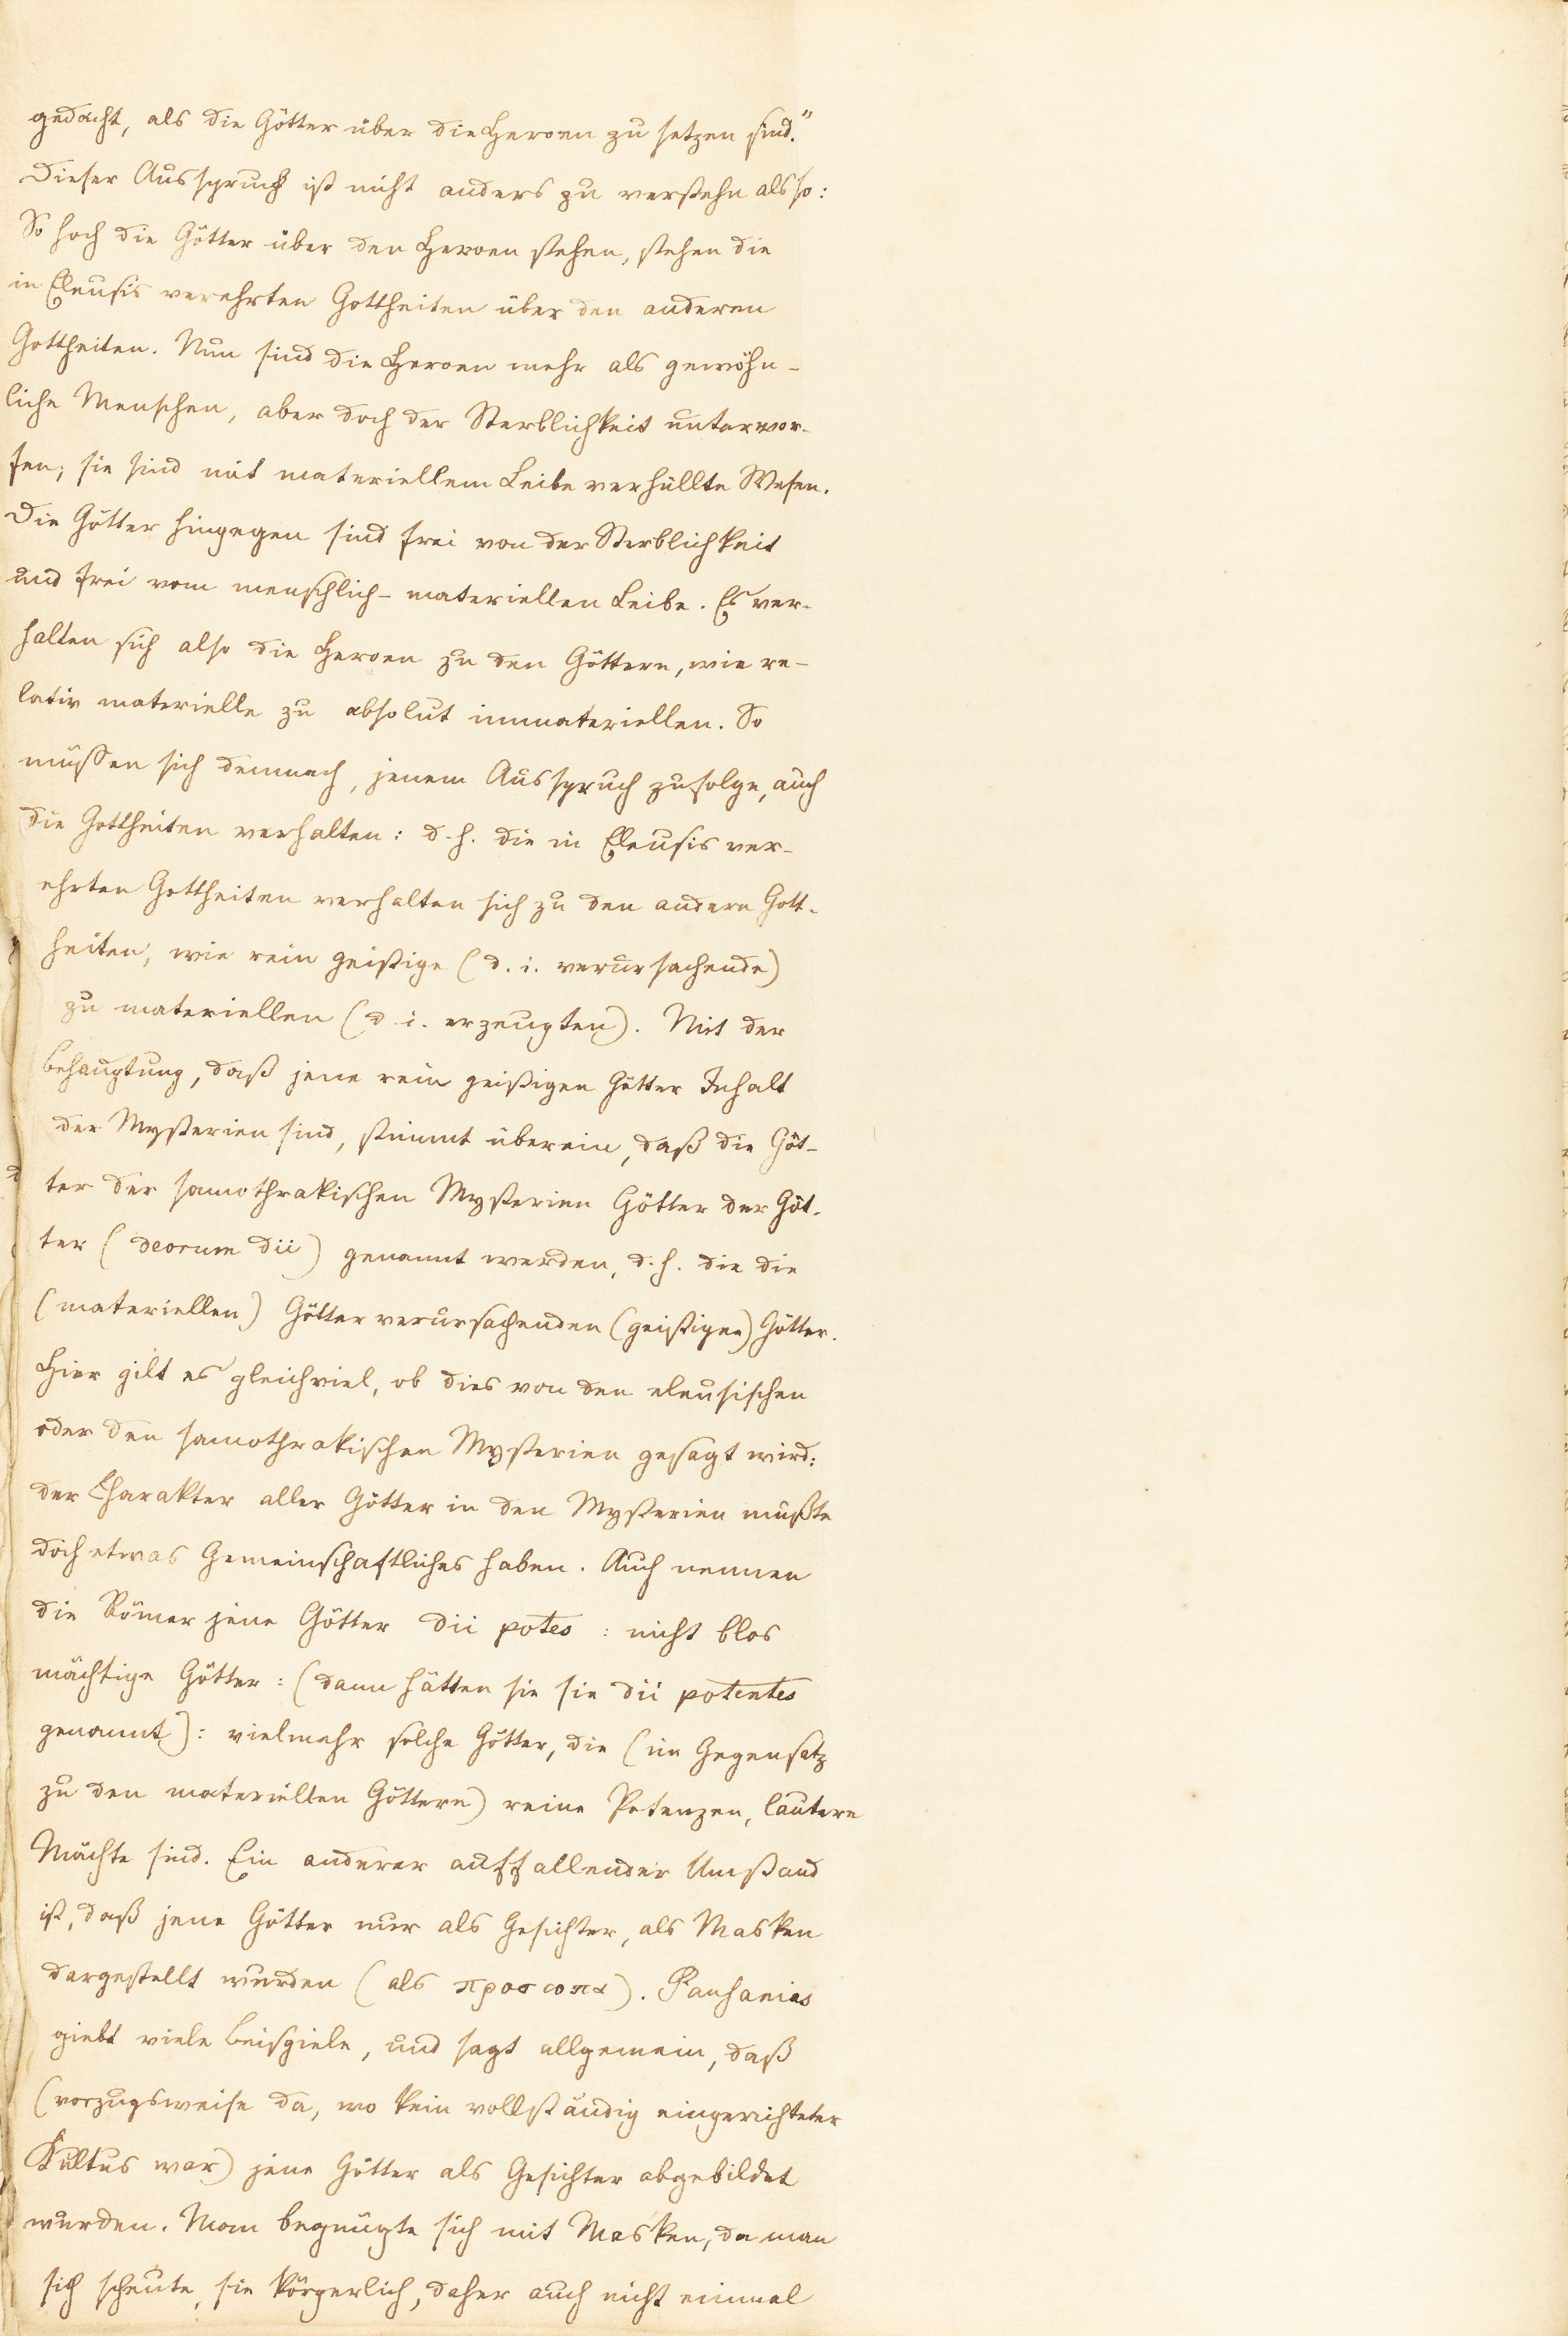 gedacht, als die Götter über die Heroen zu setzen sind."
Dieser Ausspruch ist nicht anders zu verstehn als so:
So hoch die Götter über den Heroen stehen, stehen die
in Eleusis verehrten Gottheiten über den anderen
Gottheiten. Nun sind die Heroen mehr als gewöhn-
liche Menschen, aber doch der Sterblichkeit unterwor-
fen; sie sind mit materiellem Leibe verhüllte Wesen.
Die Götter hingegen sind frei von der Sterblichkeit
und frei vom menschlich-materiellen Leibe. Es ver-
halten sich also die Heroen zu den Göttern, wie re-
lativ materielle zu absolut immateriellen. So
müssen sich demnach, jenem Ausspruch zufolge, auch
die Gottheiten verhalten: d.h. die in Eleusis ver-
ehrten Gottheiten verhalten sich zu den andern Gott-
heiten, wie rein geistige (d.i. verursachende)
zu materiellen (d.i. erzeugten). Mit der
Behauptung, daß jene rein geistigen Götter Inhalt
der Mysterien sind, stimmt überein, daß die Göt-
ter der samothrakischen Mysterien Götter der Göt-
ter (deorum dii) genannt werden, d.h. die die
(materiellen) Götter verursachenden (geistigen) Götter.
Hier gilt es gleichviel, ob dies von den eleusischen
oder den samothrakischen Mysterien gesagt wird:
der Charakter aller Götter in den Mysterien mußte
doch etwas Gemeinschaftliches haben. Auch nennen
die Römer jene Götter dii potes: nicht blos
mächtige Götter: (dann hätten sie sie dii potentes
genannt): vielmehr solche Götter, die (im Gegensatz
zu den materiellen Göttern) reine Potenzen, lautere
Mächte sind. Ein anderer auffallender Umstand
ist, daß jene Götter nur als Gesichter, als Masken
dargestellt wurden (als προσωπα). Pausanias
giebt viele Beispiele, und sagt allgemein, daß
(vorzugsweise da, wo kein vollständig eingerichteter
Kultus war) jene Götter als Gesichter abgebildet
wurden. Man begnügte sich mit Masken, da man
sich scheute, sie körperlich, daher auch nicht einmal